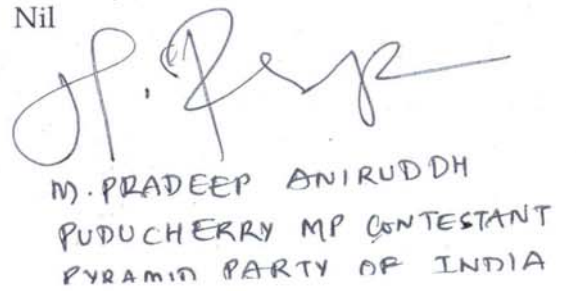 Nil
M. PRADEEP ANIRUDDH
PUDUCHERRY MP CONTESTANT
PYRAMID PARTY OF INDIA